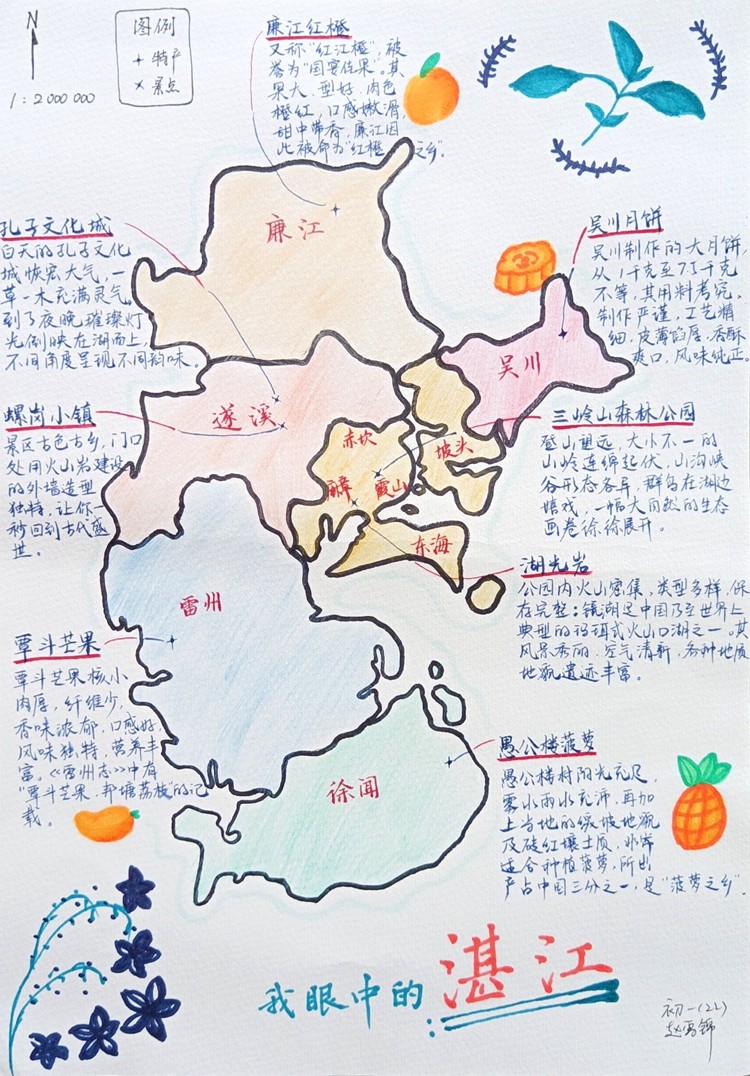 N
1:2000000
图例
+ 特产
× 景点
廉江红橙
又称"红江橙",被
誉为"国宴佳果"。其
果大、型好、肉色
橙红,口感嫩滑,
甜中带香,廉江因
此被命为"红橙之乡"。
孔子文化城
白天的孔子文化
城恢宏大气,一
草一木充满灵气,
到了夜晚璀璨灯
光倒映在湖面上,
不同角度呈现不同韵味。
吴川月饼
吴川制作的大月饼,
从1千克至7.5千克
不等,其用料考究,
制作严谨,工艺精
细,皮薄馅厚,香酥
爽口,风味纯正。
螺岗小镇
景区古色古乡,门口
处用火山岩建设
的外墙造型
独特,让你一
秒回到古代盛
世。
三岭山森林公园
登山望远,大小不一的
山岭连绵起伏,山沟峡
谷形态各异,群鸟在湖边
嬉戏,一幅大自然的生态
画卷徐徐展开。
湖光岩
公园内火山密集,类型多样,保
存完整;镜湖是中国乃至世界上
典型的玛珥式火山口湖之一,其
风景秀丽,空气清新,各种地质
地貌遗迹丰富。
覃斗芒果
覃斗芒果核小
肉厚,纤维少,
香味浓郁,口感好,
风味独特,营养丰
富。《雷州志》中有
"覃斗芒果,邦塘荔枝"的记
载。
愚公楼菠萝
愚公楼村阳光充足,
雾水雨水充沛,再加
上当地的缓坡地貌
及砖红壤土质,非常
适合种植菠萝,所出
产占中国三分之一,是"菠萝之乡"。
廉江
吴川
遂溪
赤坎
坡头
麻章
霞山
东海
雷州
徐闻
我眼中的:湛江
初一(22)
赵雪锦